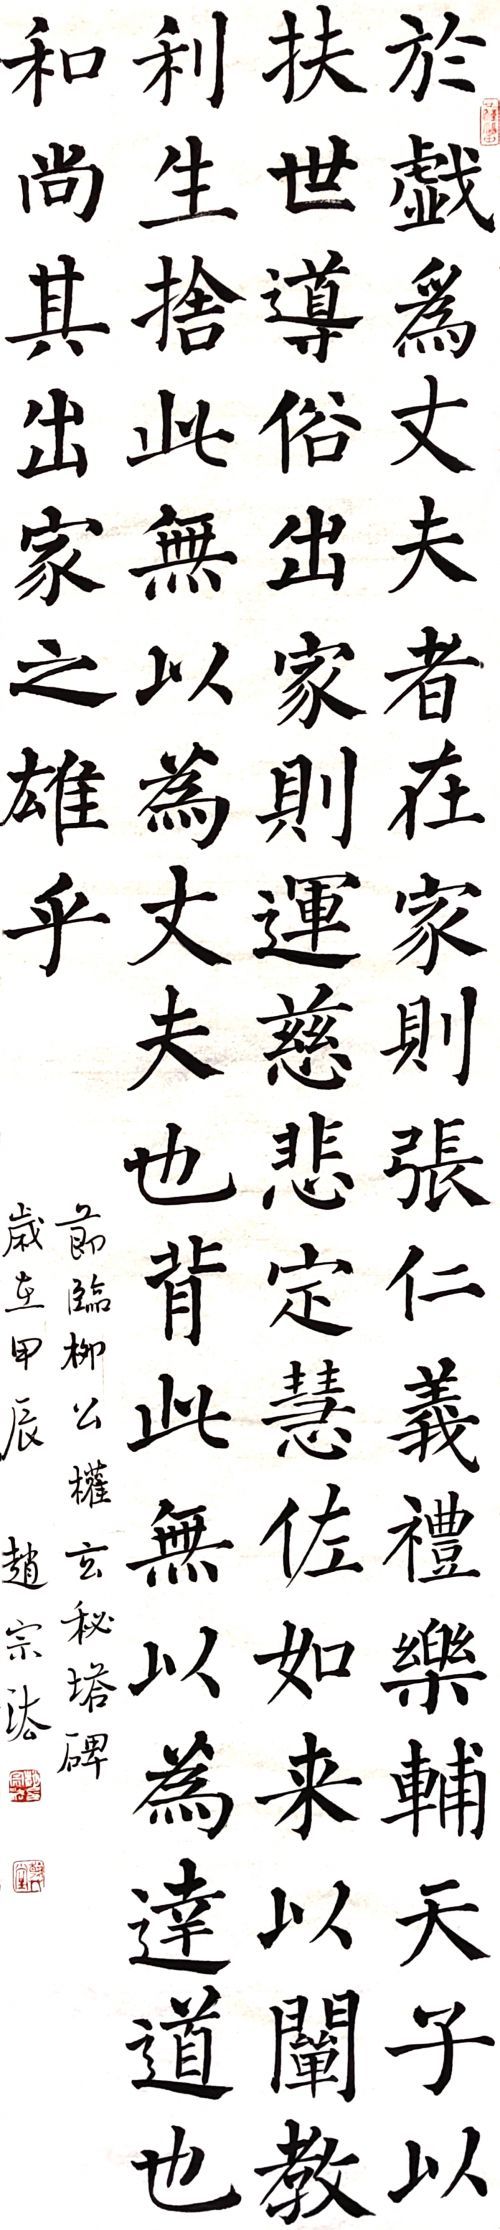 於戯爲丈夫者在家則張仁義禮樂輔天子以
扶世導俗出家則運慈悲定慧佐如来以闡教
利生捨此無以為丈夫也背此無以為達道也
和尚其出家之雄乎
節臨柳公權玄秘塔碑
歲在甲辰 趙宗